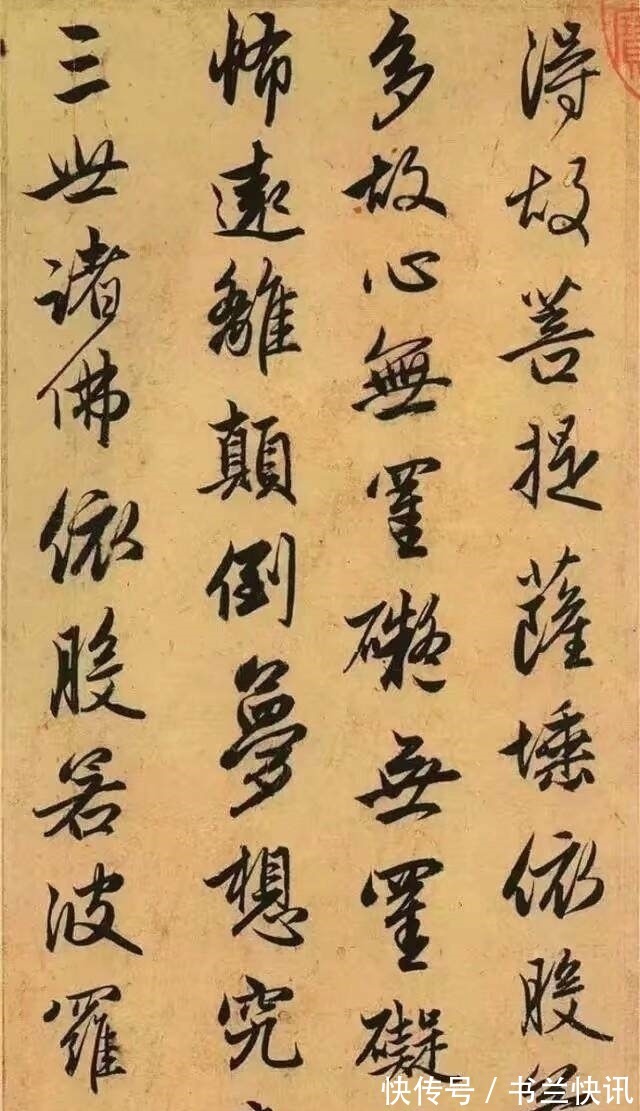 得故菩提薩埵依般
多故心無罣礙無罣礙
怖遠離顛倒夢想究
三世諸佛依般若波羅
快传号 / 书兰快讯